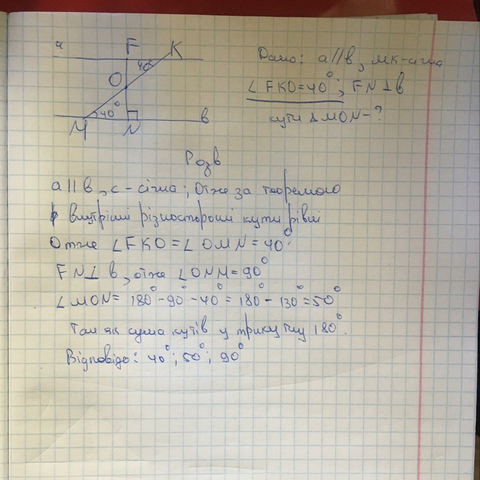 a F K
Дано: a||b, MK-січна
O 40°
∠FKO=40°; FN⊥b
40° b
кути ΔMON-?
M N
Розв
a||b, c-січна; Отже за теоремою
внутрішні різносторонні кути рівні
Отже ∠FKO=∠OMN=40°
FN⊥b, отже ∠ONM=90°
∠MON=180°-90°-40°=180°-130°=50°
Так як сума кутів у трикутнику 180°.
Відповідь: 40°; 50°; 90°